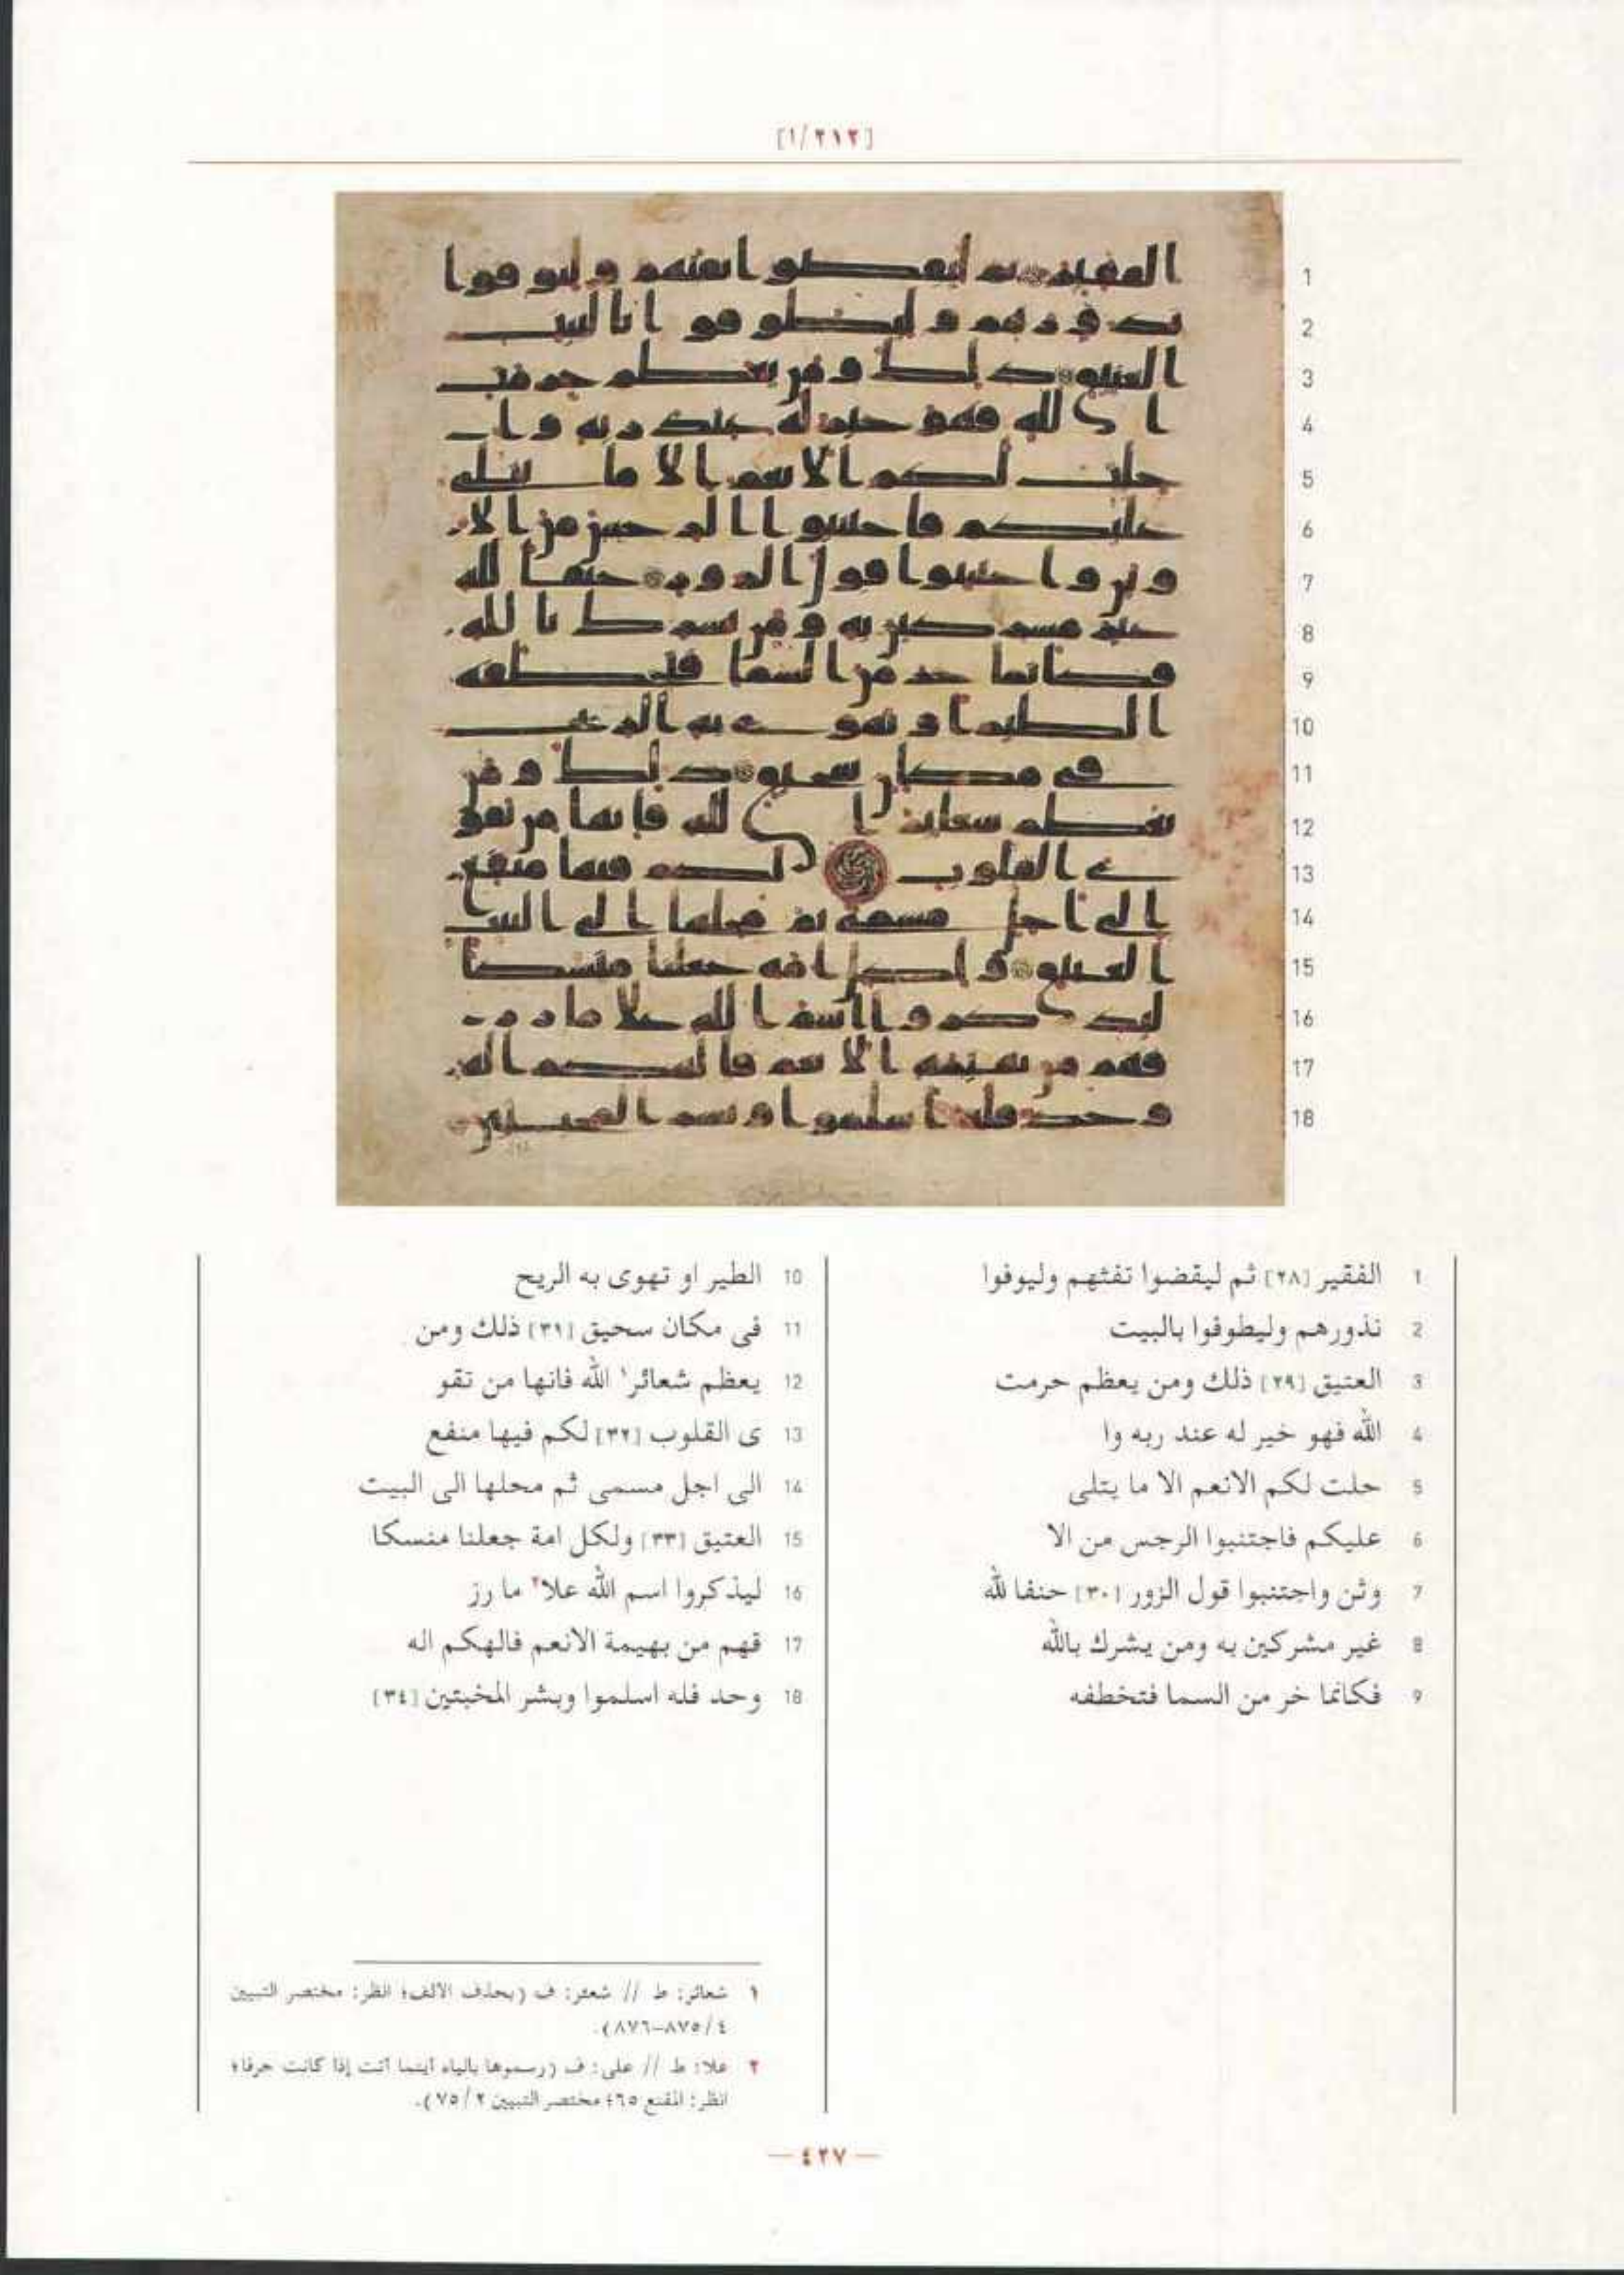 [١/٢١٢]
1
2
3
4
5
6
7
8
9
10
11
12
13
14
15
16
17
18
1 الفقير [٢٨] ثم ليقضوا تفثهم وليوفوا
2 نذورهم وليطوفوا بالبيت
3 العتيق [٢٩] ذلك ومن يعظم حرمت
4 الله فهو خير له عند ربه وا
5 حلت لكم الانعم الا ما يتلى
6 عليكم فاجتنبوا الرجس من الا
7 وثن واجتنبوا قول الزور [٣٠] حنفا لله
8 غير مشركين به ومن يشرك بالله
9 فكانما خر من السما فتخطفه
10 الطير او تهوى به الريح
11 فى مكان سحيق [٣١] ذلك ومن
12 يعظم شعائر١ الله فانها من تقو
13 ى القلوب [٣٢] لكم فيها منفع
14 الى اجل مسمى ثم محلها الى البيت
15 العتيق [٣٣] ولكل امة جعلنا منسكا
16 ليذكروا اسم الله علا٢ ما رز
17 قهم من بهيمة الانعم فالهكم اله
18 وحد فله اسلموا وبشر المخبتين [٣٤]
١ شعائر: ط // شعئر: ف (بحذف الألف؛ انظر: مختصر التبيين
٤/٨٧٥–٨٧٦).
٢ علا: ط // على: ف (رسموها بالياء أينما أتت إذا كانت حرفا؛
انظر: المقنع ٦٥؛ مختصر التبيين ٢/٧٥).
— ٤٢٧ —